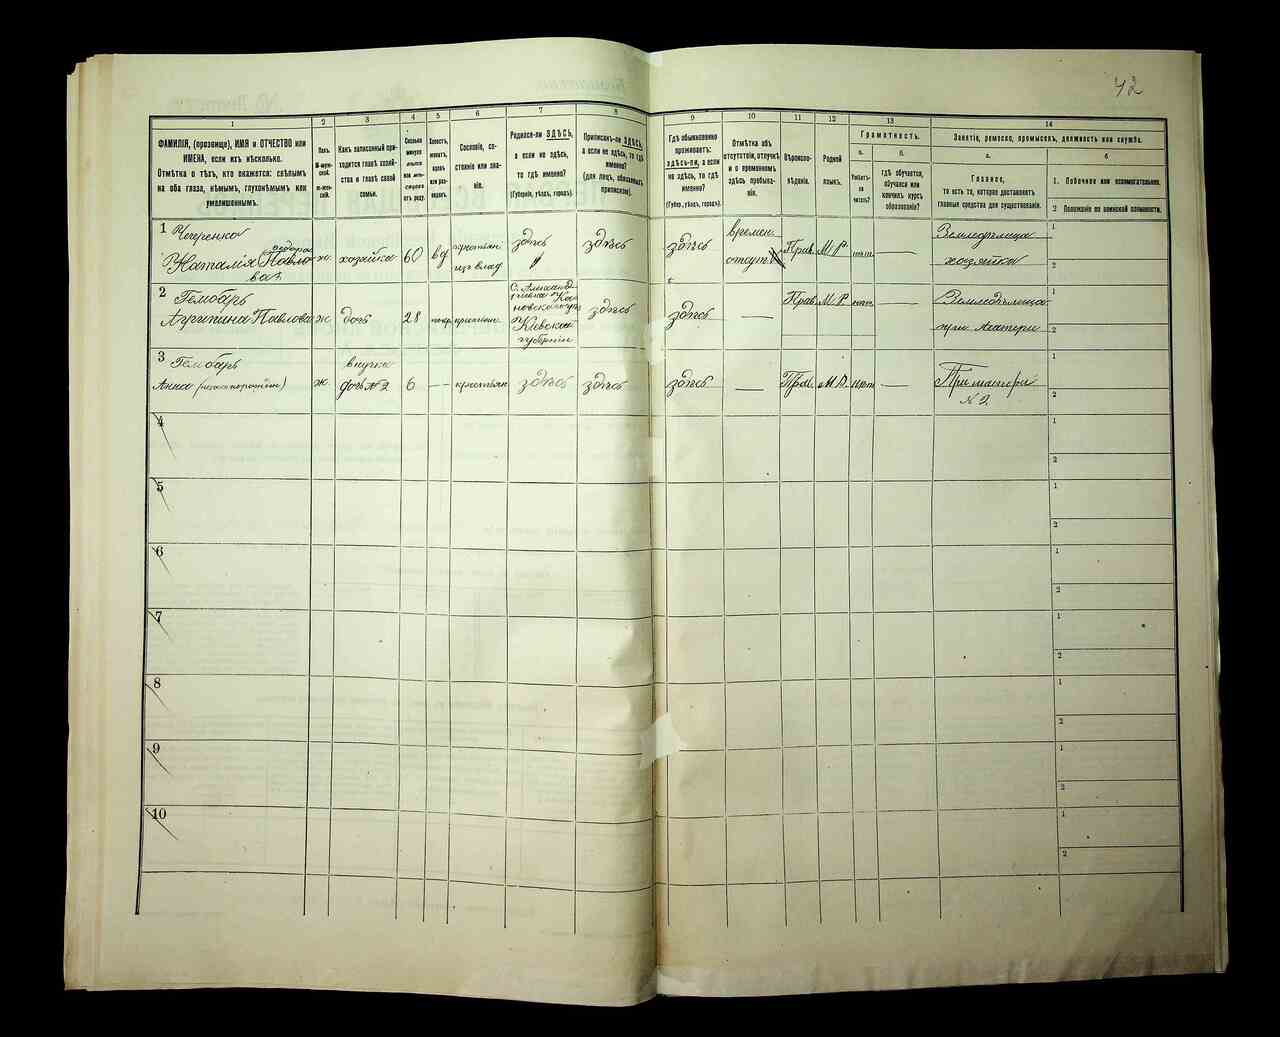 42
1
2
3
4
5
6
7
8
9
10
11
12
13
14
ФАМИЛІЯ, (прозвище), ИМЯ и ОТЧЕСТВО или
ИМЕНА, если ихъ нѣсколько.
Отмѣтка о тѣхъ, кто окажется: слѣпымъ
на оба глаза, нѣмымъ, глухонѣмымъ или
умалишеннымъ.
Полъ.
М-муж-
ской.
ж-жен-
скій.
Какъ записанный при-
ходится главѣ хозяй-
ства и главѣ своей
семьи.
Сколько
минуло
лѣтъ
или мѣ-
сяцевъ
отъ роду.
Холостъ,
женатъ,
вдовъ
или раз-
веденъ.
Сословіе, со-
стояніе или зва-
ніе.
Родился-ли ЗДѢСЬ,
а если не здѣсь,
то гдѣ именно?
(Губернія, уѣздъ, городъ).
Приписанъ-ли ЗДѢСЬ,
а если не здѣсь, то гдѣ
именно?
(для лицъ, обязанныхъ
припискою).
Гдѣ обыкновенно
проживаетъ:
здѣсь-ли, а если
не здѣсь, то гдѣ
именно?
(Губер., уѣздъ, городъ).
Отмѣтка объ
отсутствіи, отлучкѣ
и о временномъ
здѣсь пребыва-
ніи.
Вѣроиспо-
вѣданіе.
Родной
языкъ.
Грамотность.
а.
Умѣетъ-
ли
читать?
б.
гдѣ обучается,
обучался или
кончилъ курсъ
образованія?
Занятіе, ремесло, промыселъ, должность или служба.
а.
Главное,
то есть то, которое доставляетъ
главныя средства для существованія.
б
1. Побочное или вспомогательное.
2 Положеніе по воинской повинности.
1 Чегеренко
Федора
Наталія Павло
ва
ж
хозяйка
60
вд
крестьян
из влад
здѣсь
здѣсь
здѣсь
времен
отсут
Прав.
М. Р.
нет
—
Земледѣлица
хозяйка
1
2
2 Гемобарь
Агрипина Павлова
ж
дочь
28
здѣсь
Кіевской
губерніи
здѣсь
—
Прав.
М. Р.
нет
—
Земледѣлица
при Матери
1
2
3 Гемобарь
Анна
ж
внучка
дочь №2
6
—
крестьян
здѣсь
здѣсь
здѣсь
—
Прав.
М. Р.
нет
—
При матери
№ 2
1
2
4
1
2
5
1
2
6
1
2
7
1
2
8
1
2
9
1
2
10
1
2